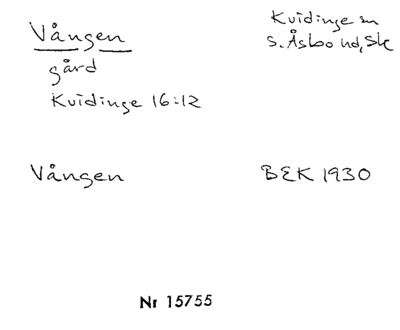 Vången
gård
Kvidinge 16:12
Kvidinge sn
S. Åsbo hd, Sk
Vången
BEK 1930
Nr 15755